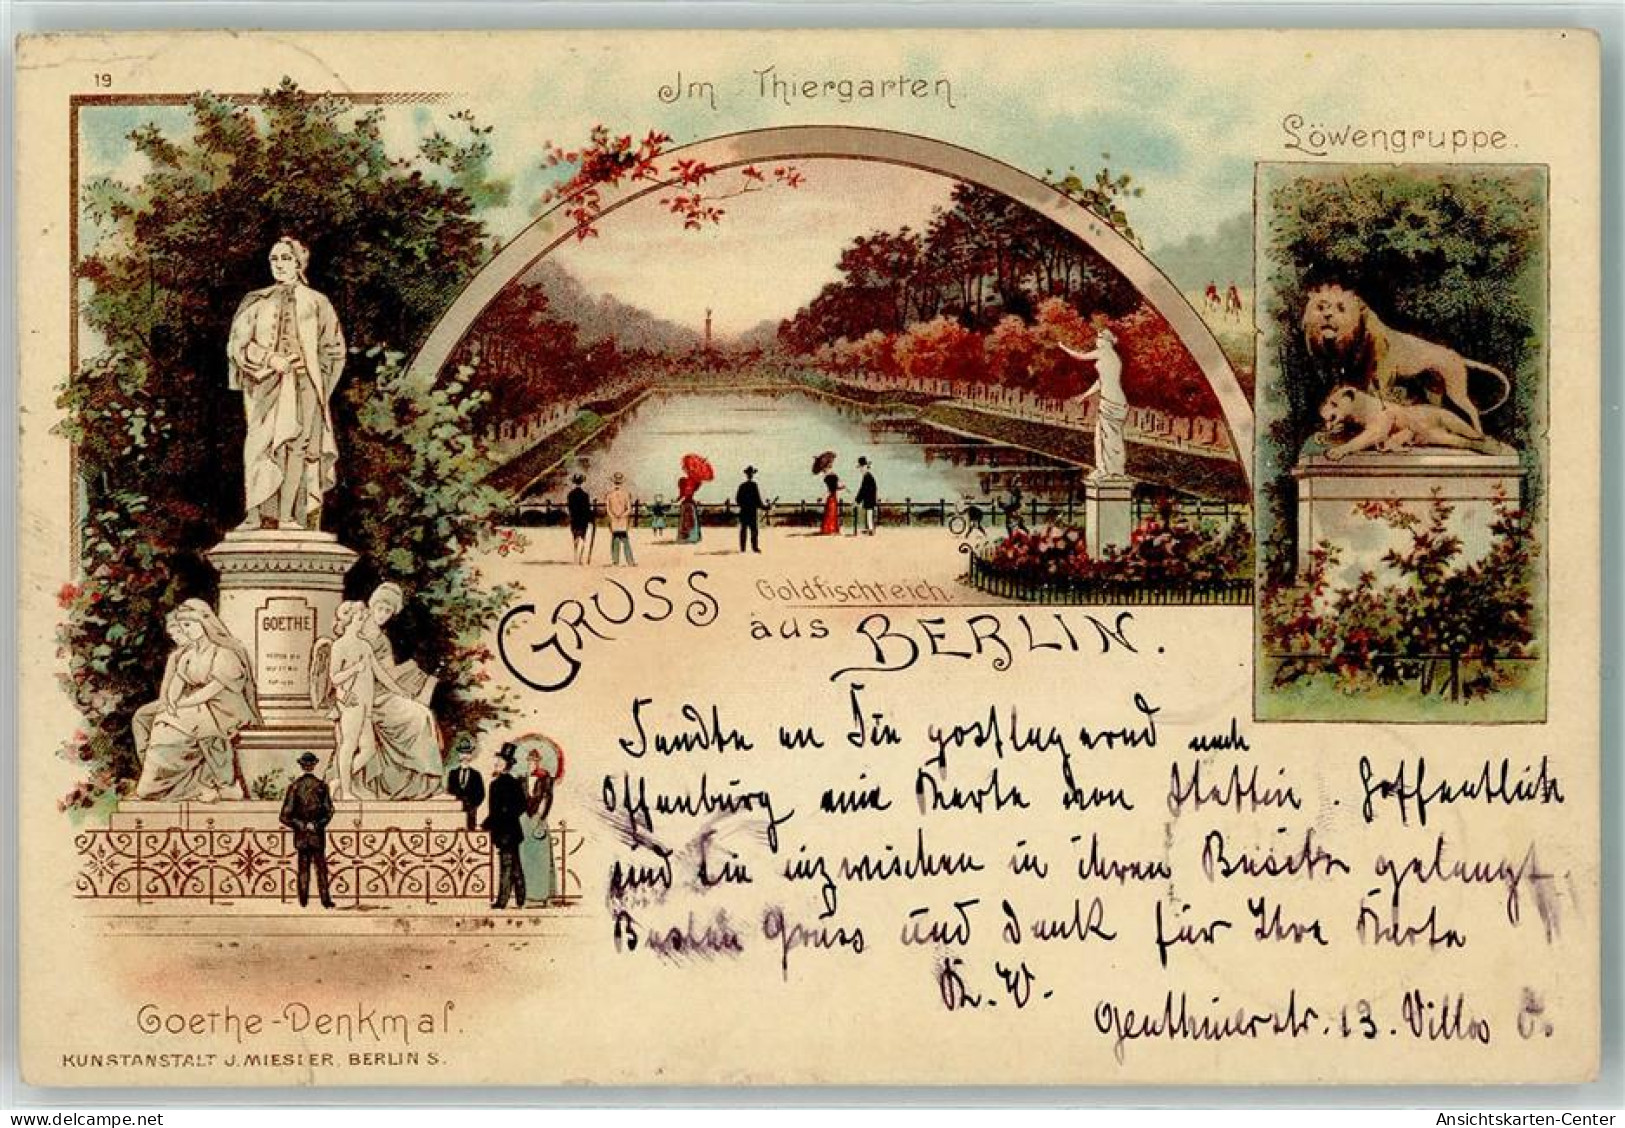 19
Im Thiergarten.
Löwengruppe.
GOETHE
Goldfischteich.
GRUSS aus BERLIN.
Sandte an Sie postlagernd nach
Offenburg eine Karte von Stettin. Hoffentlich
sind Sie inzwischen in ihren Besitz gelangt.
Besten Gruss und Dank für Ihre Karte
K. W.
Genthinerstr. 13. Villa C.
Goethe-Denkmal.
KUNSTANSTALT J. MIESLER, BERLIN S.
Ansichtskarten-Center